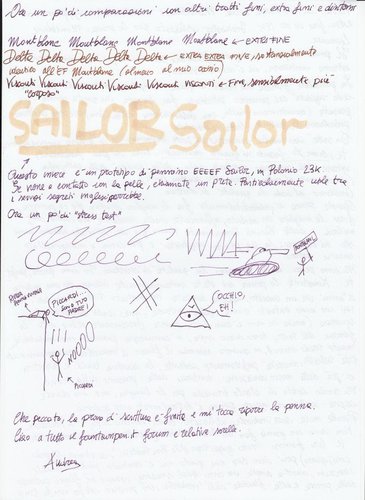 Ora un po' di comparazioni con altri tratti fini, extra fini e dintorni
Montblanc Montblanc Montblanc Montblanc ← EXTRA FINE
Delta Delta Delta Delta Delta ← EXTRA EXTRA FINE, sostanzialmente
identico all'EF Montblanc (almeno al mio occhio)
Visconti Visconti Visconti Visconti Visconti Visconti ← Fine, sensibilmente più
"corposo"
SAILOR Sailor
Questo invece è un prototipo di pennino EEEEF Sailor, in Polonio 23K
Se viene a contatto con la pelle, chiamate un prete. Particolarmente utile tra
i servizi segreti
Ora un po' di "stress test"
PICCARD!..
SONO TUO
PADRE!
OCCHIO,
EH!
PICCARD
Che peccato, la prova di scrittura è finita e mi tocca riporre la penna.
Ciao a tutto il fountainpen.it forum e relative sorelle.
Andrea